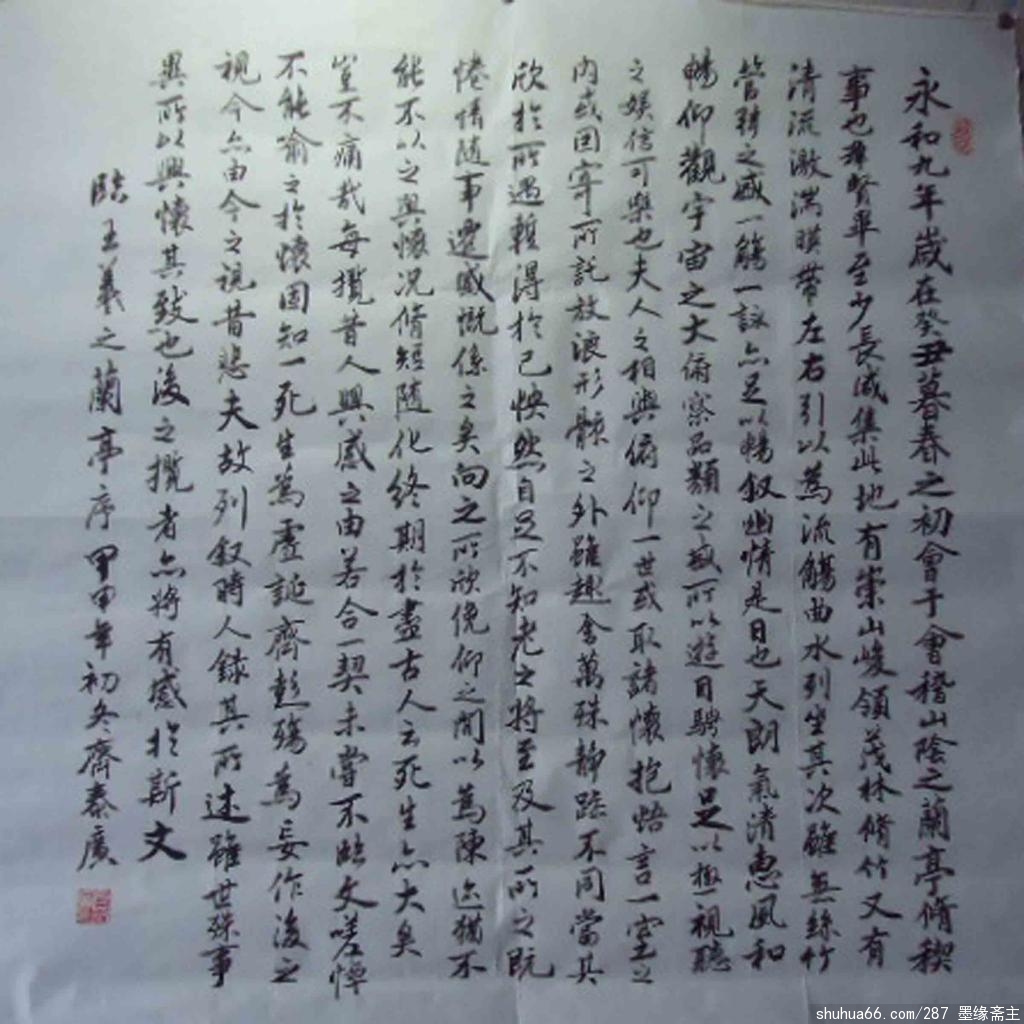 永和九年歲在癸丑暮春之初會于會稽山陰之蘭亭脩稧
事也羣賢畢至少長咸集此地有崇山峻領茂林脩竹又有
清流激湍暎帶左右引以為流觴曲水列坐其次雖無絲竹
管弦之盛一觴一詠亦足以暢敘幽情是日也天朗氣清惠風和
暢仰觀宇宙之大俯察品類之盛所以遊目騁懷足以極視聽
之娛信可樂也夫人之相與俯仰一世或取諸懷抱悟言一室之
内或因寄所託放浪形骸之外雖趣舍萬殊靜躁不同當其
欣於所遇暫得於己怏然自足不知老之將至及其所之既
惓情隨事遷感慨係之矣向之所欣俛仰之間以為陳迹猶不
能不以之興懷況脩短隨化終期於盡古人云死生亦大矣
豈不痛哉每攬昔人興感之由若合一契未嘗不臨文嗟悼
不能喻之於懷固知一死生為虛誕齊彭殤為妄作後之
視今亦由今之視昔悲夫故列敘時人錄其所述雖世殊事
異所以興懷其致也後之攬者亦將有感於斯文
臨王羲之蘭亭序甲申年初冬齊泰廣
shuhua66.com/287 墨缘斋主